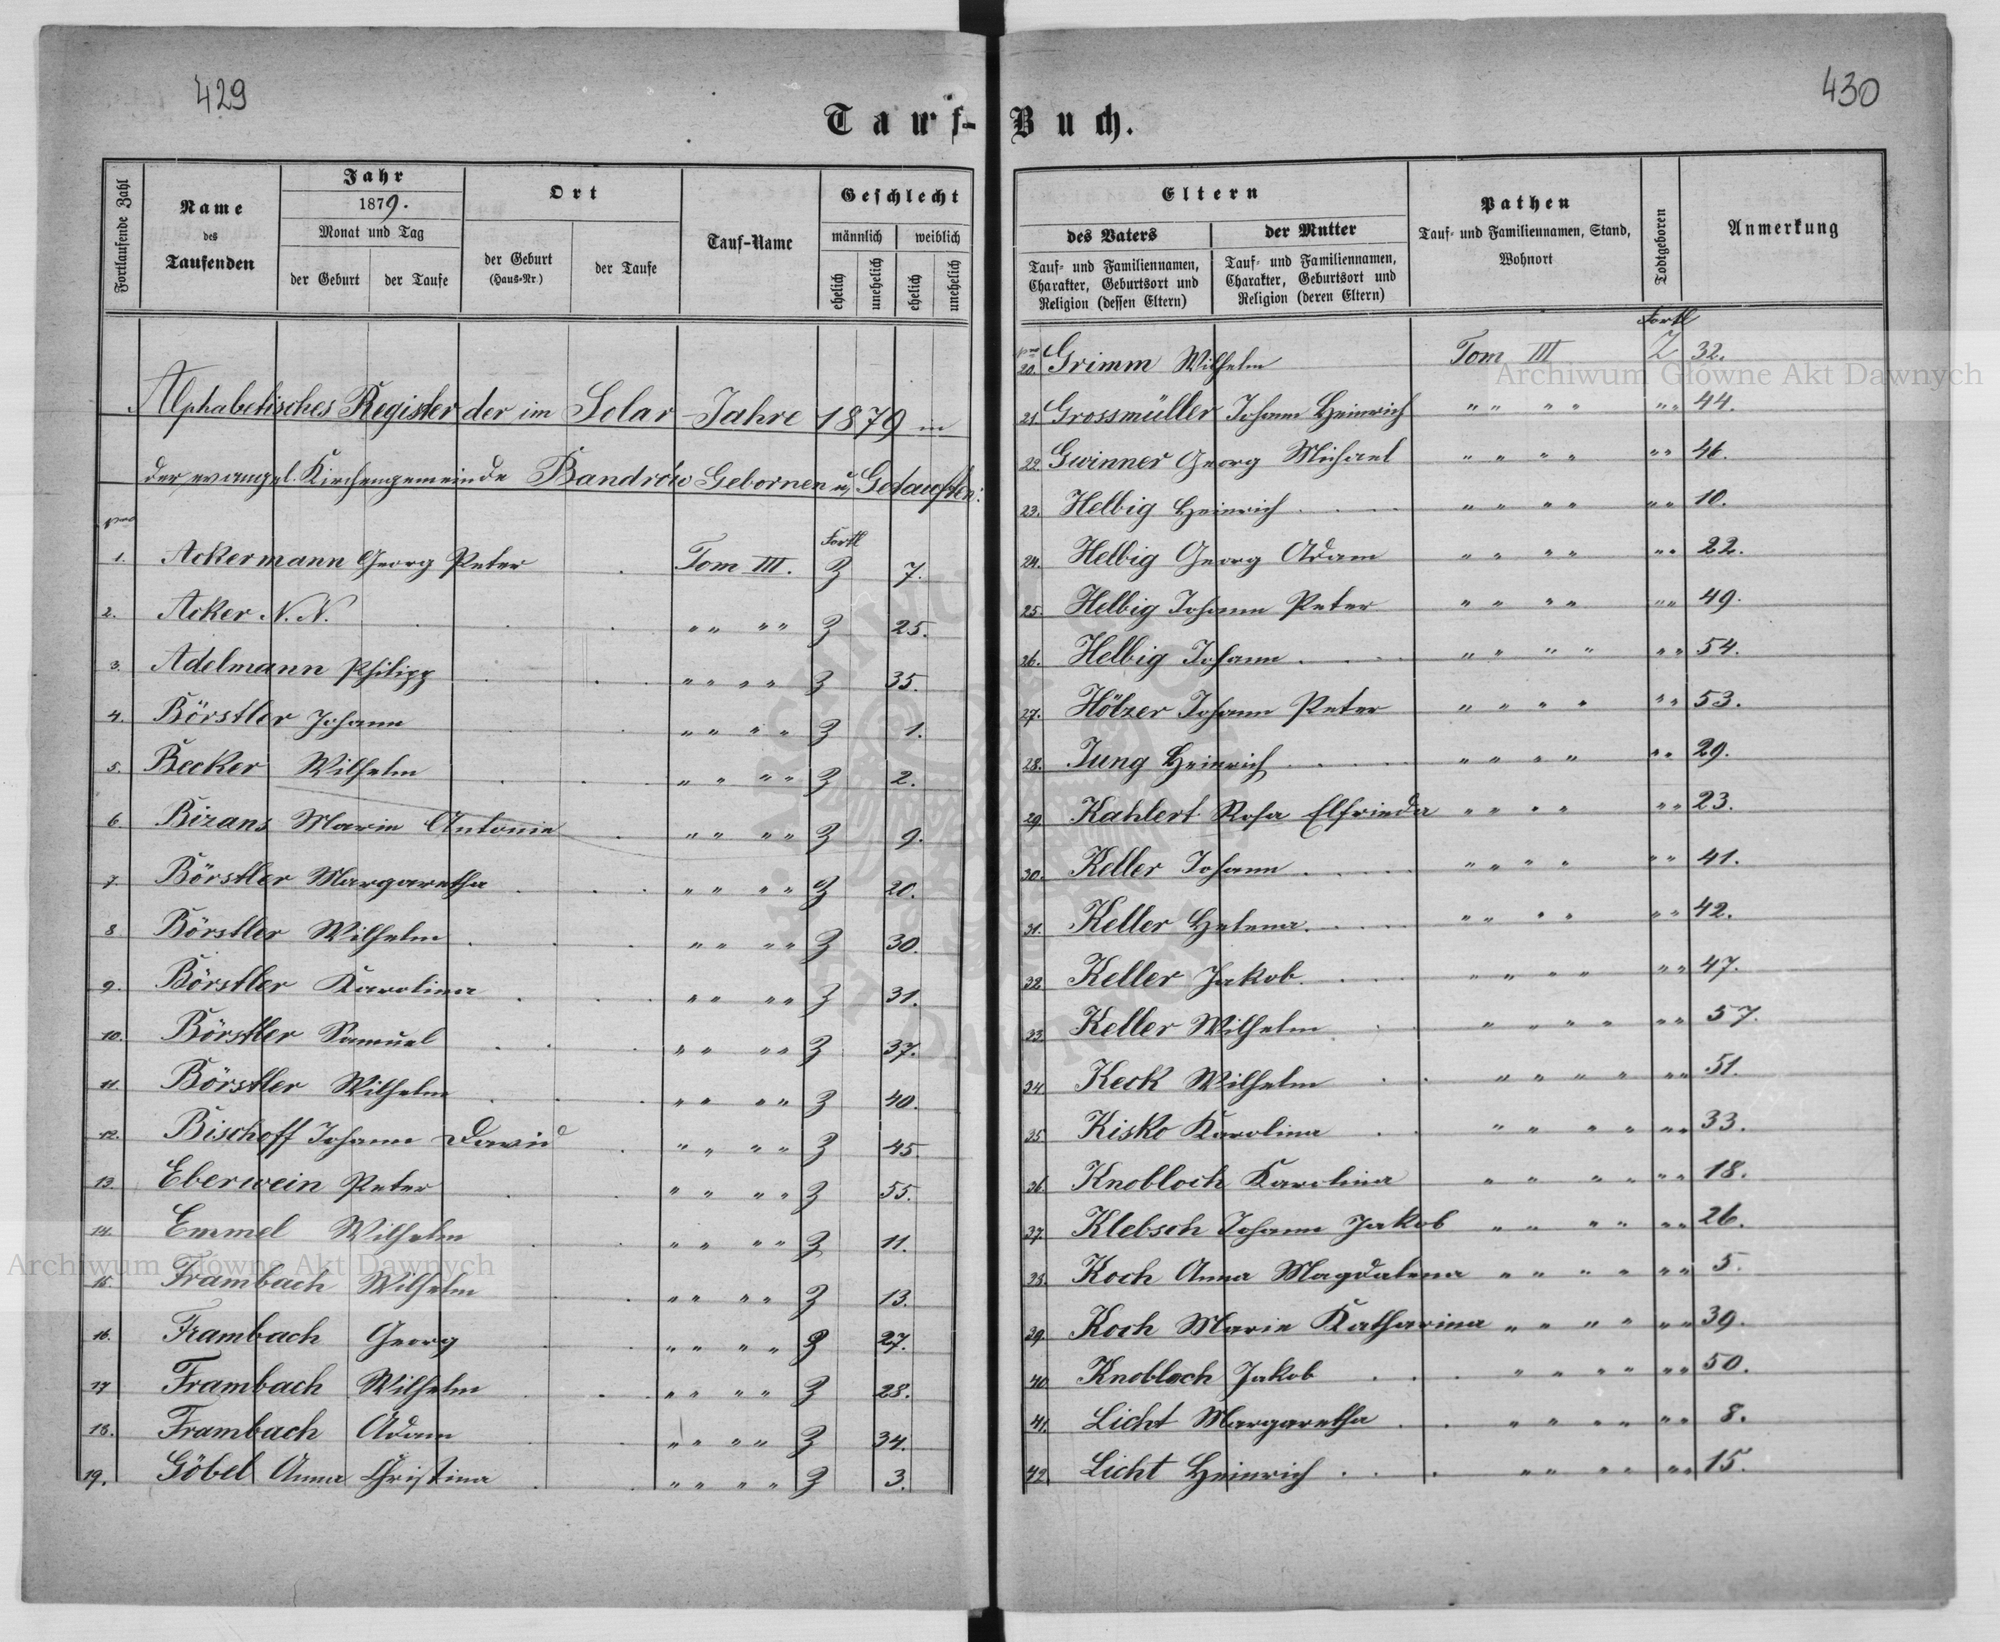 429
430
Tauf-Buch.
Fortlaufende Zahl
Name des Taufenden
Jahr
1879.
Monat und Tag
der Geburt
der Taufe
Ort
der Geburt (Haus-Nr)
der Taufe
Tauf-Name
Geschlecht
männlich
weiblich
ehelich
unehelich
ehelich
unehelich
Alphabetisches Register der im Solar Jahre 1879 in
der evangel. Kirchengemeinde Bandrów Gebornen u. Getauften:
Fortl
1. Ackermann Georg Peter Tom III. Z 7.
2. Acker N. N. " " " " Z 25.
3. Adelmann Philipp " " " " Z 35.
4. Börstler Johann " " " " Z 1.
5. Becker Wilhelm " " " " Z 2.
6. Bizans Marie Antonie " " " " Z 9.
7. Börstler Margaretha " " " " Z 20.
8. Börstler Wilhelm " " " " Z 30.
9. Börstler Karolina " " " " Z 31.
10. Börstler Samuel " " " " Z 37.
11. Börstler Wilhelm " " " " Z 40.
12. Bischoff Johann David " " " " Z 45.
13. Eberwein Peter " " " " Z 55.
14. Emmel Wilhelm " " " " Z 11.
15. Frambach Wilhelm " " " " Z 13.
16. Frambach Georg " " " " Z 27.
17 Frambach Wilhelm " " " " Z 28.
18. Frambach Adam " " " " Z 34.
19. Göbel Anna Christina " " " " Z 3.
Eltern
des Vaters
Tauf- und Familiennamen, Charakter, Geburtsort und Religion (dessen Eltern)
der Mutter
Tauf- und Familiennamen, Charakter, Geburtsort und Religion (deren Eltern)
Pathen
Tauf- und Familiennamen, Stand, Wohnort
Todtgeboren
Anmerkung
Fortl
20. Grimm Wilhelm Tom III Z 32.
21. Grossmüller Johann Heinrich " " " " " " 44.
22. Gwinner Georg Michael " " " " " " 46.
23. Helbig Heinrich " " " " " " 10.
24. Helbig Georg Adam " " " " " " 22.
25. Helbig Johann Peter " " " " " " 49.
26. Helbig Johann " " " " " " 54.
27. Hölzer Johann Peter " " " " " " 53.
28. Jung Heinrich " " " " " " 29.
29. Kahlert Rosa Elfrieda " " " " " " 23.
30. Keller Johann " " " " " " 41.
31. Keller Helena " " " " " " 42.
32. Keller Jakob " " " " " " 47.
33. Keller Wilhelm " " " " " " 57.
34. Keck Wilhelm " " " " " " 51.
35. Kisko Karolina " " " " " " 33.
36. Knobloch Karolina " " " " " " 18.
37. Klebsch Johann Jakob " " " " " " 26.
38. Koch Anna Magdalena " " " " " " 5.
39. Koch Marie Katharina " " " " " " 39.
40. Knobloch Jakob " " " " " " 50.
41. Licht Margaretha " " " " " " 8.
42. Licht Heinrich " " " " " " 15.
Archiwum Główne Akt Dawnych
Archiwum Główne Akt Dawnych